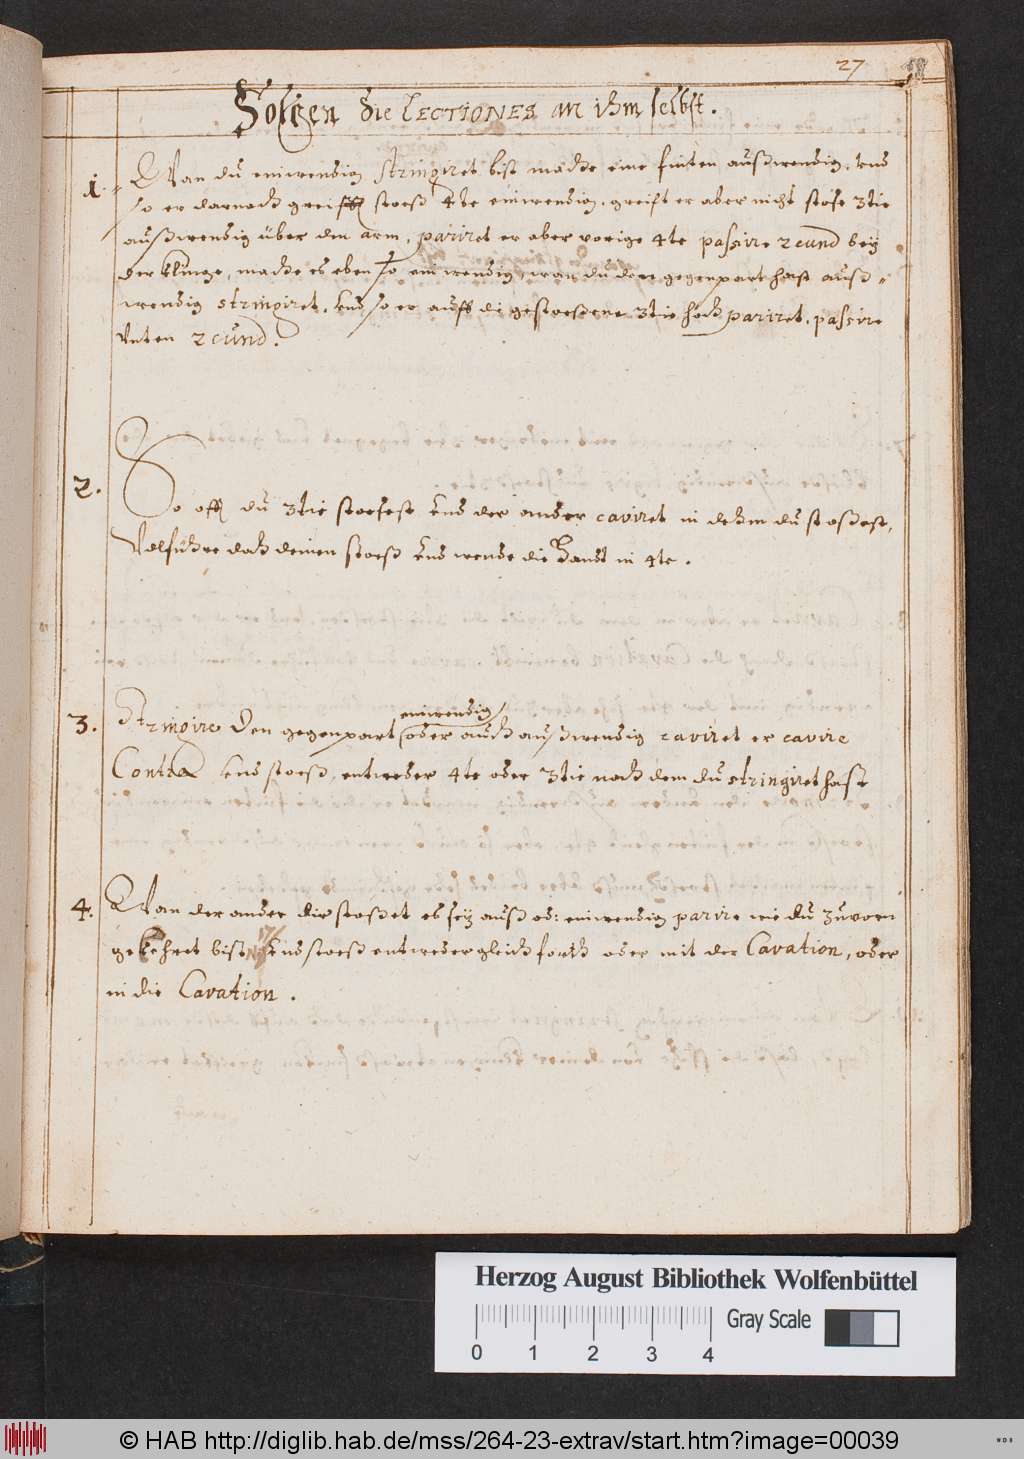 27
Folgen die LECTIONES an ihm selbst.
1. Wan du einwendig stringiret bist mache eine finten außwendig, vnd
so er darnach greifft stoeß 4te einwendig, greift er aber nicht stoße 3tie
außwendig über den arm, pariret er aber vorige 4te passire 2cund bey
der klinge, mache es eben so einwendig, wan du den gegenpart hast auß=
wendig stringiret, vnd so er auff di gestoeßene 3tie hoch pariret, passire
Vnten 2cund.
2. So offt du 3tie stoesest vnd der ander caviret in dehm du stoßest,
Volführe doch deinen stoeß vnd wende die Handt in 4te.
3. Stringire den gegenpart einwendig oder auch außwendig caviret er cavire
Contra vnd stoeß, entweder 4te oder 3tie nach dem du stringiret hast
4. Wan der ander dir stoßet es sey auß od: einwendig parire wie du zuvorn
gelehret bist vnd stoeß entweder gleich forth oder mit der Cavation, oder
in die Cavation.
Herzog August Bibliothek Wolfenbüttel
Gray Scale
0 1 2 3 4
© HAB http://diglib.hab.de/mss/264-23-extrav/start.htm?image=00039